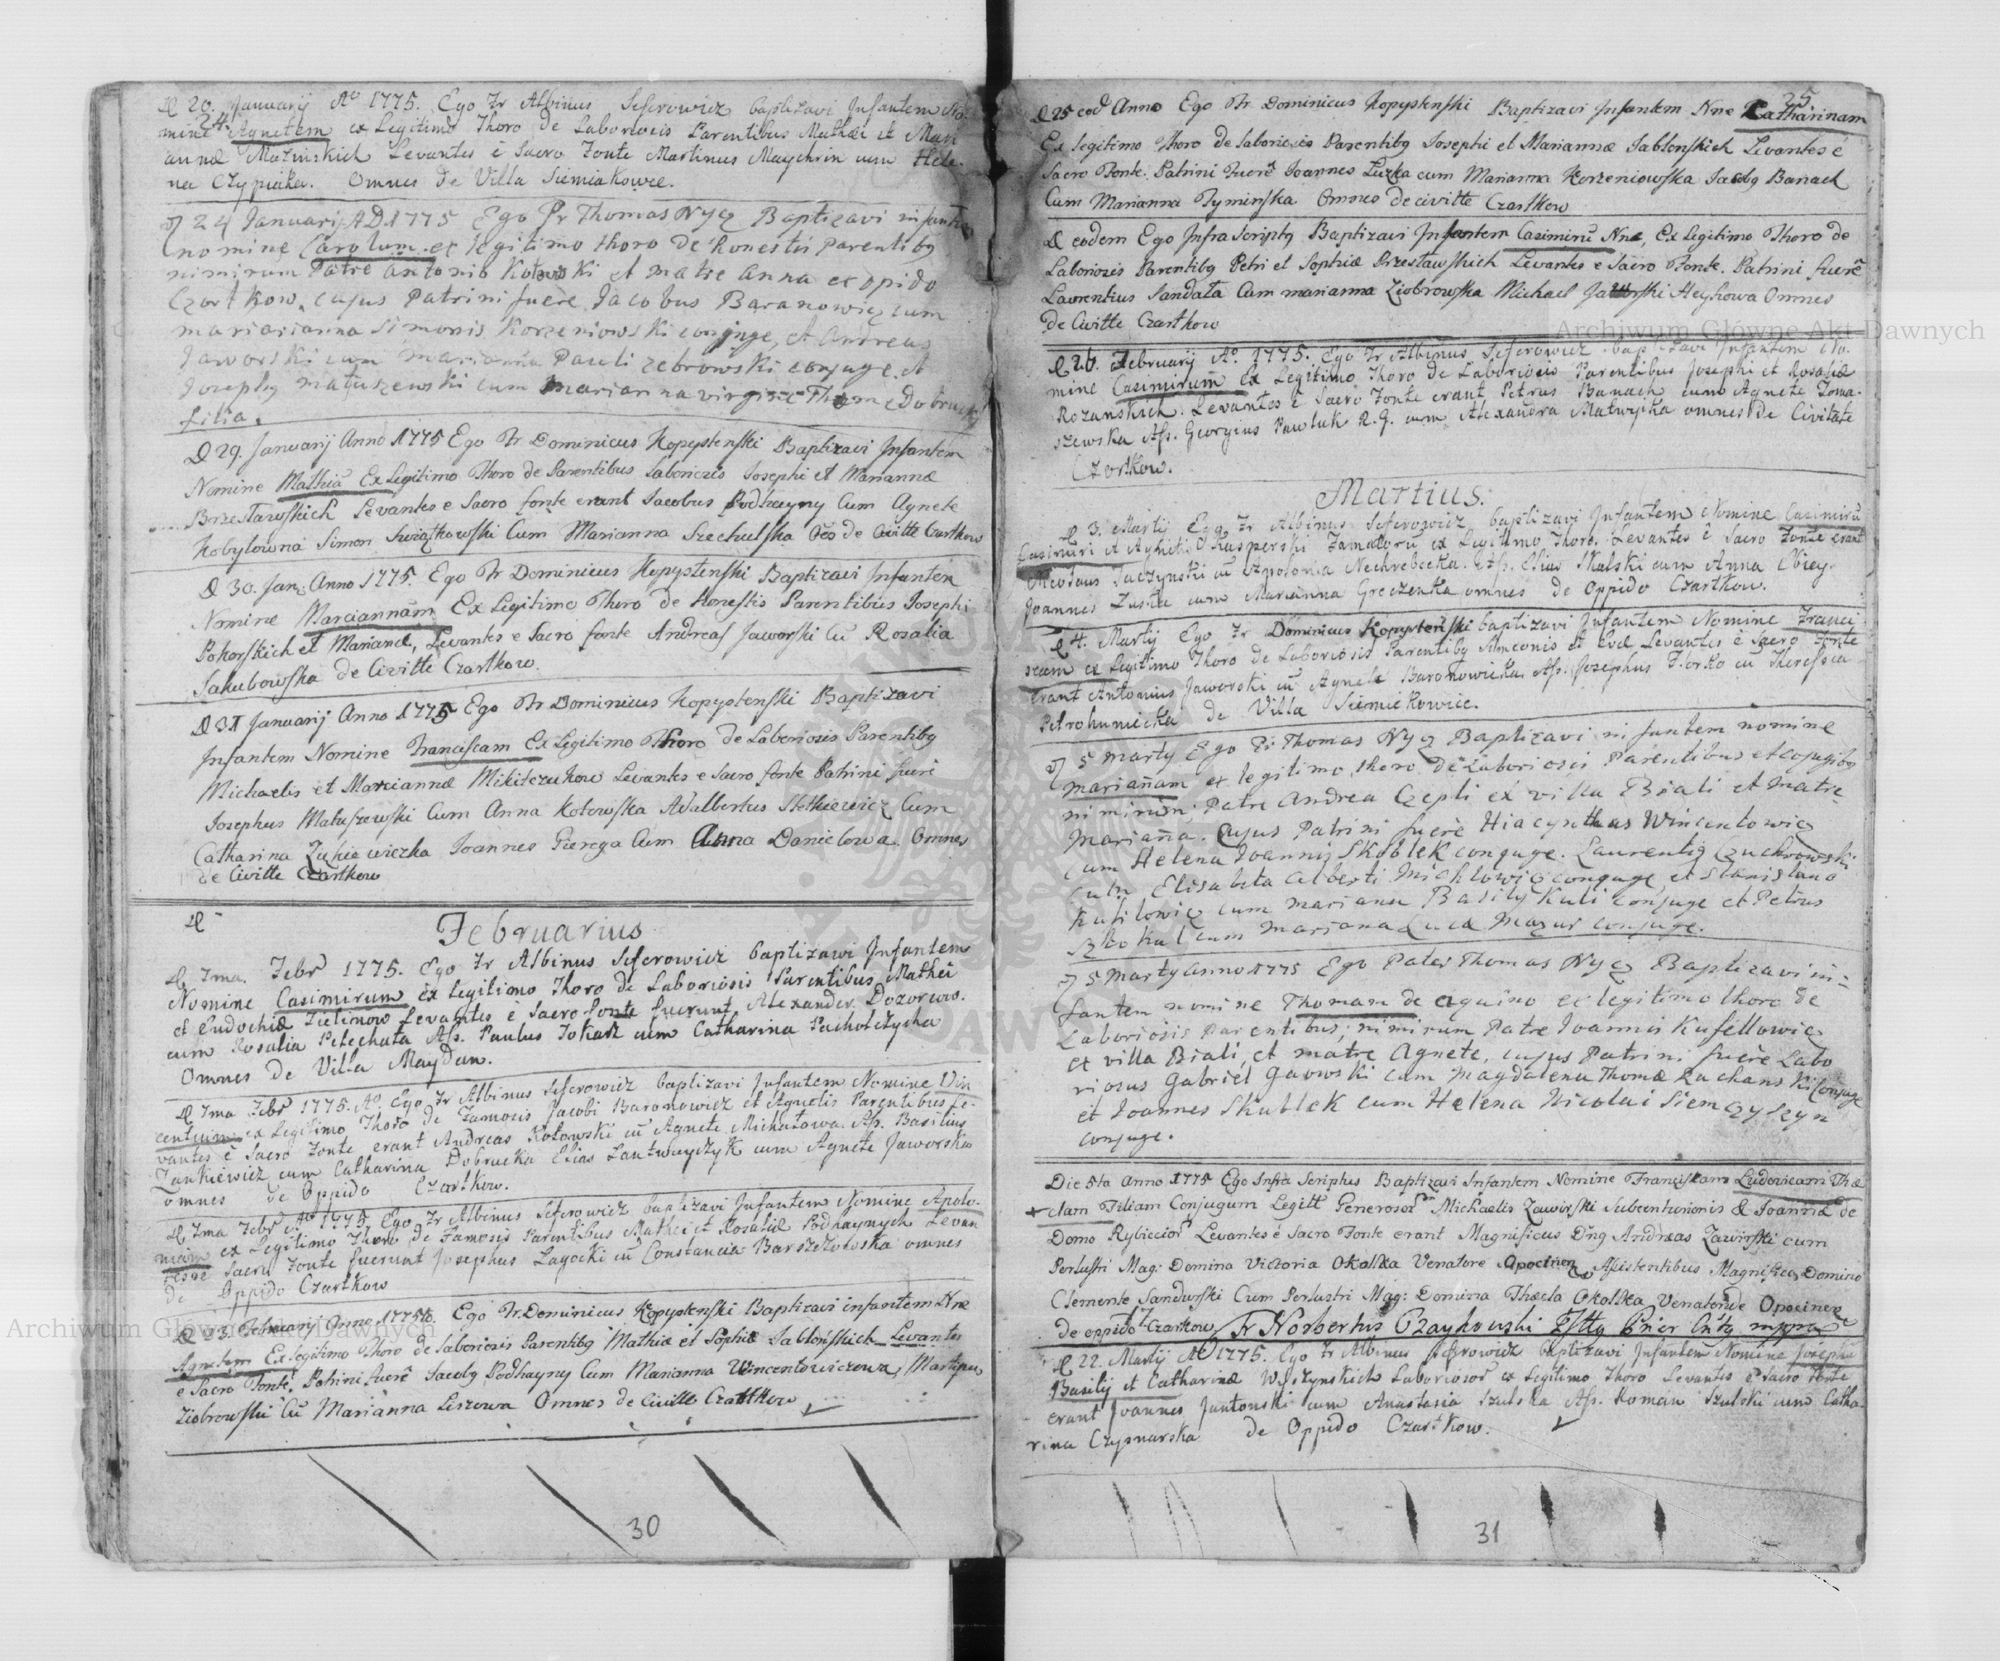 D 20. Januarij Aº 1775. Ego Fr Albinus Seferowicz baptizavi Infantem No-
mine Agnetem ex Legitimo Thoro de Laboriosis Parentibus Mathæi et Mari
annæ Mazinskich Levantes è Sacro Fonte Martinus Maychrin cum Hele-
na Czypiaka. Omnes de Villa Siemiakowce.
24 Januarij A.D. 1775 Ego Pr Thomas Nycz Baptizavi infantem
nomine Carolum ex legitimo thoro de honestis parentibg
nimirum Patre Antonio Kotowski et matre Anna ex opido
Czortkow, cujus Patrini fuere Jacobus Baranowicz cum
mariarianna Simonis Korzeniowski conjuge, et Andreas
Jaworski cum marianna Pauli zebrowski conjuge, et
Josephg matuszewski cum marianna virgine Thomæ Dobrucki
filia.
D 29. Januarij Anno 1775 Ego Fr Dominicus Kopystenski Baptizavi Infantem
Nomine Mathiā Ex Legitimo Thoro de Parentibus Laboriosis Josephi et Mariannæ
Brzesławskich Levantes e Sacro fonte erant Jacobus Podhayny Cum Agnete
Kobylowna Simon Swiątkowski Cum Marianna Szechulska Oēs de Civitte Czartkow
D 30. Jan: Anno 1775. Ego Fr Dominicus Kopystenski Baptizavi Infantem
Nomine Marciannām Ex Legitimo Thoro de Honestis Parentibus Josephi
Pokorskich et Mariannæ, Levantes e Sacro fonte Andreas Jaworski Cū Rosalia
Jakubowska de Civitte Czartkow.
D 31 Januarij Anno 1775 Ego Fr Dominicus Kopystenski Baptizavi
Infantem Nomine Franciscam Ex Legitimo Thoro de Laboriosis Parentibg
Michaelis et Marciannæ Mikiteczukow Levantes e Sacro fonte Patrini fuerē
Josephus Matuszewski Cum Anna Kotowska Adalbertus Stetkiewicz Cum
Catharina Zukiewiczka Joannes Gierega Cum Anna Danielowa Omnes
de Civitte Czartkow
D
Februarius
D 7ma. Febr 1775. Ego Fr Albinus Seferowicz baptizawi Infantem
Nomine Casimirum ex Legitimo Thoro de Laboriosis Parentibus Mathei
et Eudochiæ Zielinow Levantes è Sacro Fonte fuerunt Alexander Dozorew.
cum Rosalia Pelechata Ass. Paulus Tokarz cum Catharina Pacholczycha
Omnes de Villa Maydan.
D 7ma Febr 1775. Aº Ego Fr Albinus Seferowicz baptizavi Infantem Nomine Vin
centium ex Legitimo Thoro de Famosis Jacobi Baranowicz et Agnetis Parentibus Le-
vantes è Sacro Fonte erant Andreas Kotowski cū Agnete Michałowa. Ass. Basilius
Zankiewicz cum Catharina Dobrucka Elias Lantwuyczyk cum Agnete Jaworska
omnes de Oppido Czartkow.
D 7ma Febr Aº 1775 Ego Fr Albinus Seferowicz baptizavi Infantem Nomine Apolo-
niam ex Legitimo Thoro de Famosis Parentibus Mathei et Rosaliæ Podhaynych Levan
tes è Sacro Fonte fuerunt Josephus Lagocki cū Constancia Barszczowska omnes
de Oppido Czartkow
D 23. Februarij Anno 1775 Ego Fr. Dominicus Kopystenski Baptizavi infantem Nne
Agnetem Ex legitimo Thoro de Laboriosis Parentibg Mathiæ et Sophiæ Jabłonskich Levantes
e Sacro Fonte. Patrini fuerē Jacobg Podhayny Cum Marianna Wincentowiczowa, Martinus
Ziobrowski Cū Marianna Liszowa Omnes de Civitte Czartkow
30
25
D 25 eod Anno Ego Fr Dominicus Kopystenski Baptizavi Infantem Nne Catharinam
Ex legitimo Thoro de laboriosis Parentibg Josephi et Mariannæ Jablonskich Levantes é
Sacro Fonte. Patrini fuerē Joannes Luzka cum Marianna Korzeniowska Jacobg Banach
Cum Marianna Tyminska Omnes de Civitte Czartkow
D eodem Ego Infra Scriptg Baptizavi Infantem Casimirū Nne, Ex Legitimo Thoro de
Laboriosis Parentibg Petri et Sophiæ Brzesławskich Levantes e Sacro Fonte. Patrini fuerē
Laurentius Sandata Cum marianna Ziobrowska Michael Jaworski Heyhowa Omnes
de Civitte Czartkow
D 26. Februarij Aº. 1775. Ego Fr Albinus Seferowicz baptizavi Infantem No-
mine Casimirum ex Legitimo Thoro de Laboriosis Parentibus Josephi et Rosaliæ
Rozanskich. Levantes è Sacro Fonte erant Petrus Banach cum Agnete Toma-
szewska Ass. Georgius Pawluk R. G. cum Alexandra Matweyka omnes de Civitate
Czortkow.
Martius.
D 3. Martij Ego Fr Albinus Seferowicz baptizavi Infantem Nomine Casimirū
Casimiri et Agnetis Kasperski Famatorū ex Legitimo Thoro. Levantes è Sacro Fonte erant
Nicolaus Taczynski cū Apolonia Nechrebecka. Ass. Elias Skalski cum Anna
Joannes cum Marianna Greczenka omnes de Oppido Czartkow.
D 4. Martij Ego Fr Dominicus Kopystenski baptizavi Infantem Nomine Franci
scam ex Legitimo Thoro de Laboriosis Parentibg Simeonis et Evæ Levantes è Sacro Fonte
erant Antonius Jaworski cū Agnete Baronowicka. Ass. Josephus Fiorko cū Theressia
Petrohunicka de Villa Siemiekowice.
5 marty Ego Pr Thomas Nycz Baptizavi infantem nomine
mariañam ex legitimo thoro de Laboriosis Parentibus et conjugibg
nimirum Patre Andrea Czepli ex villa Biali et matre
mariaña. Cujus Patrini fuere Hiacynthus Wincentowicz
cum Helena Joannis Skoblek conjuge. Laurentig Czuchrowski
cum Elisabeta Alberti Michlowicz conjuge, et Stanislaus
Kufilowicz cum marianna Basily Kuli conjuge et Petrus
Szkokal cum mariana Lucæ Mazur conjuge.
5 Marty Anno 1775 Ego Pater Thomas Nycz Baptizavi in-
fantem nomine Thomam de Aquino ex legitimo thoro de
Laboriosis parentibus, nimirum Patre Joannis Kufellowicz
ex villa Biali, et matre Agnete, cujus Patrini fuere Labo
riosus Gabriel Gavowski cum Magdalena Thomæ Luchanski conjuge
et Joannes Skublek cum Helena Nicolai Siemczyszyn
conjuge.
Die 5ta Anno 1775 Ego Infra Scriptus Baptizavi Infantem Nomine Franciscam Ludovicam Thæ
clam Filiam Conjugum Legitt Generosor Michaelis Zaworski Subcenturionis & Joannæ de
Domo Rybiccior Levantes è Sacro Fonte erant Magnificus Dñg Andreas Zawirski cum
Perlustri Mag: Domina Victoria Okolska Venatore Opocinen Assistentibus Magnifico Domino
Clemente Sandurski Cum Perlustri Mag: Domina Thæcla Okolska Venatorde Opocinen
de oppido Czartkow Fr Norbertus Czaykowski mppra
D 22. Martij Aº 1775. Ego Fr Albinus Seferowicz baptizavi Infantem Nomine Josephū
Basilij et Catharinæ Wyszynskich Laboriosor ex Legitimo Thoro Levantes è Sacro Fonte
erant Joannes Jantonski cum Anastasia Szulska Ass. Roman Szulski cum Catha-
rina Czypnarska de Oppido Czartkow.
31
Archiwum Główne Akt Dawnych
Archiwum Główne Akt Dawnych